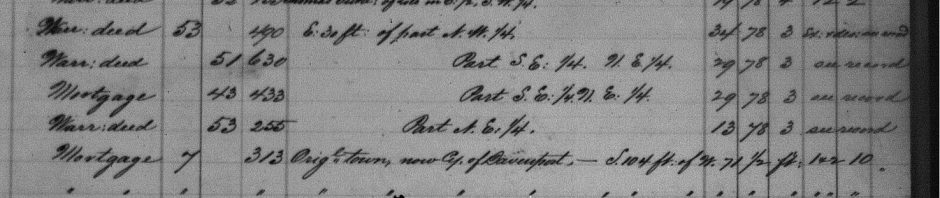 Warr: deed 53 490 E. 30 ft of part N. W. 1/4. 34 78 3 record
Warr: deed 51 630 Part S. E: 1/4. N. E 1/4. 29 78 3 see record
Mortgage 43 433 Part S. E: 1/4. N. E. 1/4. 29 78 3 see record
Warr: deed 53 255 Part N. E: 1/4. 13 78 3 see record
Mortgage 7 313 Orig'l town, now Cy. of Davenport, — S. 104 ft. of W. 71 1/2 ft: 1&2 10
" " " " " " " " " " " " " "